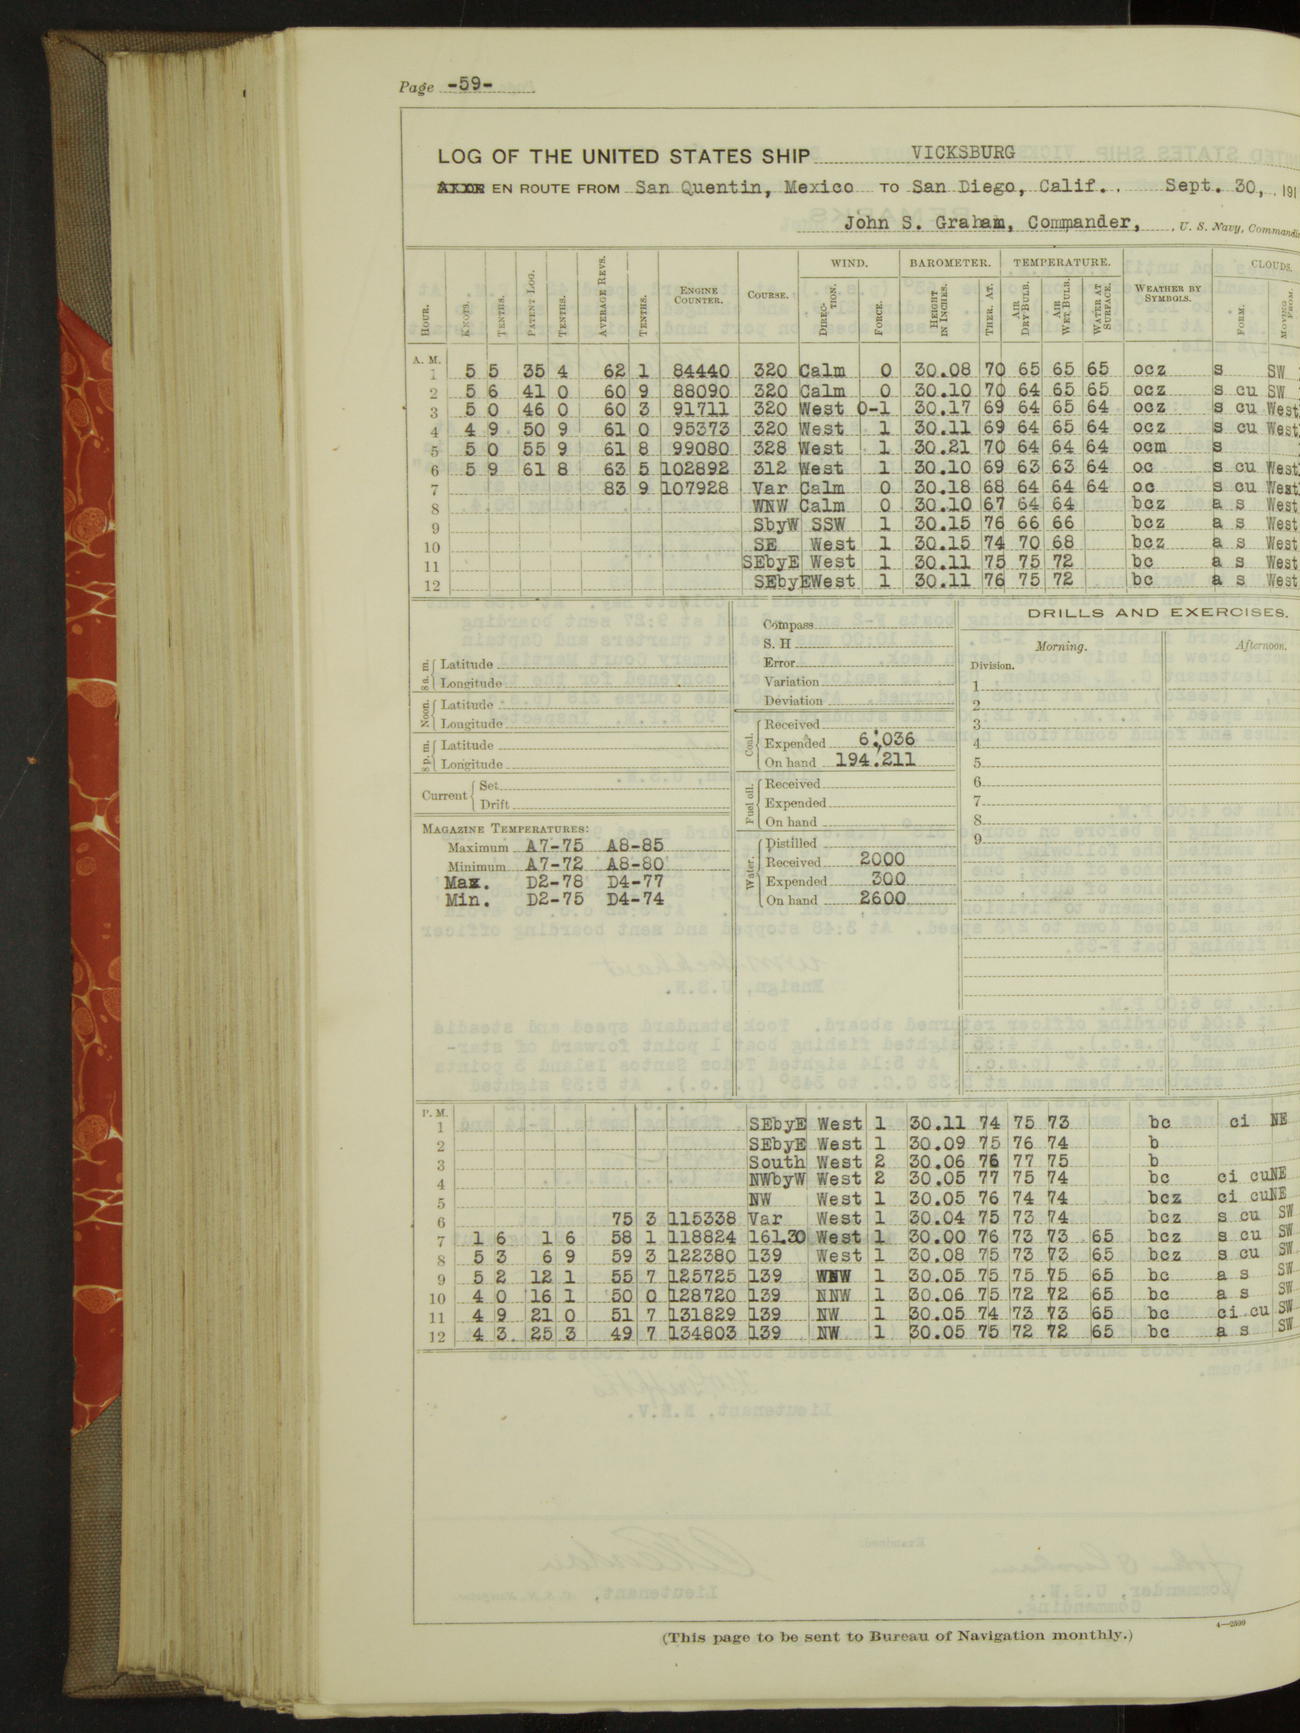 Page -59-
LOG OF THE UNITED STATES SHIP VICKSBURG
EN ROUTE FROM San Quentin, Mexico TO San Diego, Calif. Sept. 30, 191
John S. Graham, Commander, U. S. Navy, Commandi
WIND. BAROMETER. TEMPERATURE. CLOUDS.
HOUR. KNOTS. TENTHS. PATENT LOG. TENTHS. AVERAGE REVS. TENTHS. ENGINE COUNTER. COURSE. DIREC-TION. FORCE. HEIGHT IN INCHES. THER. AT. AIR DRY BULB. AIR WET BULB. WATER AT SURFACE. WEATHER BY SYMBOLS. FORM. MOVING FROM.
A. M.
1 5 5 35 4 62 1 84440 320 Calm 0 30.08 70 65 65 65 ocz s SW
2 5 6 41 0 60 9 88090 320 Calm 0 30.10 70 64 65 65 ocz s cu SW
3 5 0 46 0 60 3 91711 320 West 0-1 30.17 69 64 65 64 ocz s cu West
4 4 9 50 9 61 0 95373 320 West 1 30.11 69 64 65 64 ocz s cu West
5 5 0 55 9 61 8 99080 328 West 1 30.21 70 64 64 64 ocm s
6 5 9 61 8 63 5 102892 312 West 1 30.10 69 63 63 64 oc s cu West
7 83 9 107928 Var Calm 0 30.18 68 64 64 64 oc s cu West
8 WNW Calm 0 30.10 67 64 64 bcz a s West
9 SbyW SSW 1 30.15 76 66 66 bcz a s West
10 SE West 1 30.15 74 70 68 bcz a s West
11 SEbyE West 1 30.11 75 75 72 bc a s West
12 SEbyE West 1 30.11 76 75 72 bc a s West
8 a. m. Latitude
Longitude
Noon. Latitude
Longitude
8 p. m. Latitude
Longitude
Current Set
Drift
MAGAZINE TEMPERATURES:
Maximum A7-75 A8-85
Minimum A7-72 A8-80
Max. D2-78 D4-77
Min. D2-75 D4-74
Compass
S. H
Error
Variation
Deviation
Coal. Received
Expended 6.036
On hand 194.211
Fuel oil. Received
Expended
On hand
Water. Distilled
Received 2000
Expended 300
On hand 2600
DRILLS AND EXERCISES.
Morning. Afternoon.
Division.
1
2
3
4
5
6
7
8
9
P. M.
1 SEbyE West 1 30.11 74 75 73 bc ci NE
2 SEbyE West 1 30.09 75 76 74 b
3 South West 2 30.06 76 77 75 b
4 NWbyW West 2 30.05 77 75 74 bc ci cu NE
5 NW West 1 30.05 76 74 74 bcz ci cu NE
6 75 3 115338 Var West 1 30.04 75 73 74 bcz s cu SW
7 1 6 1 6 58 1 118824 161.30 West 1 30.00 76 73 73 65 bcz s cu SW
8 5 3 6 9 59 3 122380 139 West 1 30.08 75 73 73 65 bcz s cu SW
9 5 2 12 1 55 7 125725 139 WNW 1 30.05 75 75 75 65 bc a s SW
10 4 0 16 1 50 0 128720 139 NNW 1 30.06 75 72 72 65 bc a s SW
11 4 9 21 0 51 7 131829 139 NW 1 30.05 74 73 73 65 bc ci cu SW
12 4 3 25 3 49 7 134803 139 NW 1 30.05 75 72 72 65 bc a s SW
(This page to be sent to Bureau of Navigation monthly.)